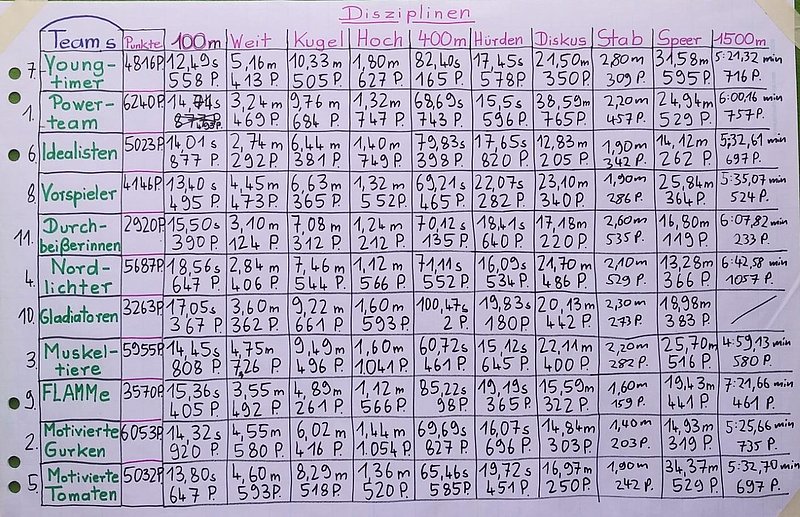 Disziplinen
Teams Punkte 100m Weit Kugel Hoch 400m Hürden Diskus Stab Speer 1500m
7. Young- 4816P 12,49s 5,16m 10,33m 1,80m 82,40s 17,45s 21,50m 2,80m 31,58m 5:21,32 min
timer 558 P. 413 P. 505 P. 627 P. 165 P. 578P. 350P. 309 P. 595 P. 716 P.
1. Power- 6240P 14,74s 3,24m 9,76m 1,32m 68,69s 15,5s 38,59m 2,20m 24,94m 6:00,16 min
team 469 P. 684 P. 747 P. 743 P. 596 P. 765P. 457P. 529 P. 757P.
6. Idealisten 5023P 14,01s 2,74m 6,44m 1,40m 79,83s 17,65s 12,83m 1,90m 14,12m 5:32,61 min
877 P. 292P. 381 P. 749 P. 398 P. 820 P. 205 P. 342 P. 262 P. 697P.
8. Vorspieler 4146P 13,40s 4,45m 6,63m 1,32m 69,21s 22,07s 23,10m 1,90m 25,84m 5:35,07 min
495 P. 473P. 365P. 552P. 465P. 282 P. 340P. 286P. 364P. 524 P.
11. Durch- 2920P 15,50s 3,10m 7,08m 1,24m 70,12s 18,41s 17,18m 2,60m 16,80m 6:07,82 min
beißerinnen 390P. 124 P. 312 P. 212 P. 135 P. 640P. 220P. 535P. 119P. 233 P.
4. Nord- 5687P 18,56s 2,84m 7,46m 1,12m 71,11s 16,09s 21,70m 2,10m 13,28m 6:42,58 min
lichter 647 P. 406 P. 544 P. 566 P. 552P. 534P. 486 P. 529 P. 366 P. 1057P.
10. Gladiatoren 3263P 17,05s 3,60m 9,22m 1,60m 100,47s 19,83s 20,13m 2,30m 18,98m
367 P. 362P. 661 P. 593P. 2 P. 180P. 442 P. 273P. 383 P.
3. Muskel- 5955P 14,45s 4,75m 9,49m 1,60m 60,72s 15,12s 22,11m 2,20m 25,70m 4:59,13 min
tiere 808 P. 726 P. 496 P. 1.041 P. 461P. 645P. 400 P. 282P. 516 P. 580 P.
9. FLAMMe 3570P 15,36s 3,55m 4,89m 1,12m 85,22s 19,19s 15,59m 1,60m 19,43m 7:21,66 min
405 P. 492 P. 261 P. 566 P. 98P. 365P. 322 P. 159 P. 441 P. 461 P.
2. Motivierte 6053P 14,32s 4,55m 6,02m 1,44m 69,69s 16,07s 14,84m 1,40m 14,93m 5:25,66 min
Gurken 920 P. 580 P. 416 P. 1.054 P. 827 P. 696 P. 303P. 203P. 319 P. 735 P.
5. Motivierte 5032P 13,80s 4,60m 8,29m 1,36m 65,46s 19,72s 16,97m 1,90m 34,37m 5:32,70 min
Tomaten 647 P. 593P. 518P. 520 P. 585P. 451P. 250P. 242 P. 529 P. 697 P.